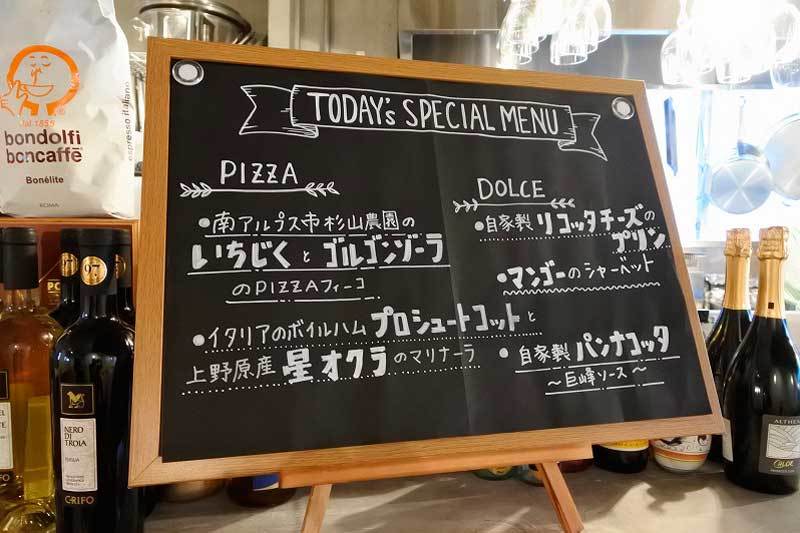 bondolfi
boncaffē
Bonélite
ROMA
espresso italiano
TODAY's SPECIAL MENU
PIZZA
•南アルプス市杉山農園の
いちじくとゴルゴンゾーラ
のPIZZAフィーコ
•イタリアのボイルハムプロシュートコットと
上野原産星オクラのマリナーラ
DOLCE
•自家製リコッタチーズの
プリン
•マンゴーのシャーベット
•自家製パンナコッタ
〜巨峰ソース〜
NERO
DI
TROIA
PUGLIA
GRIFO